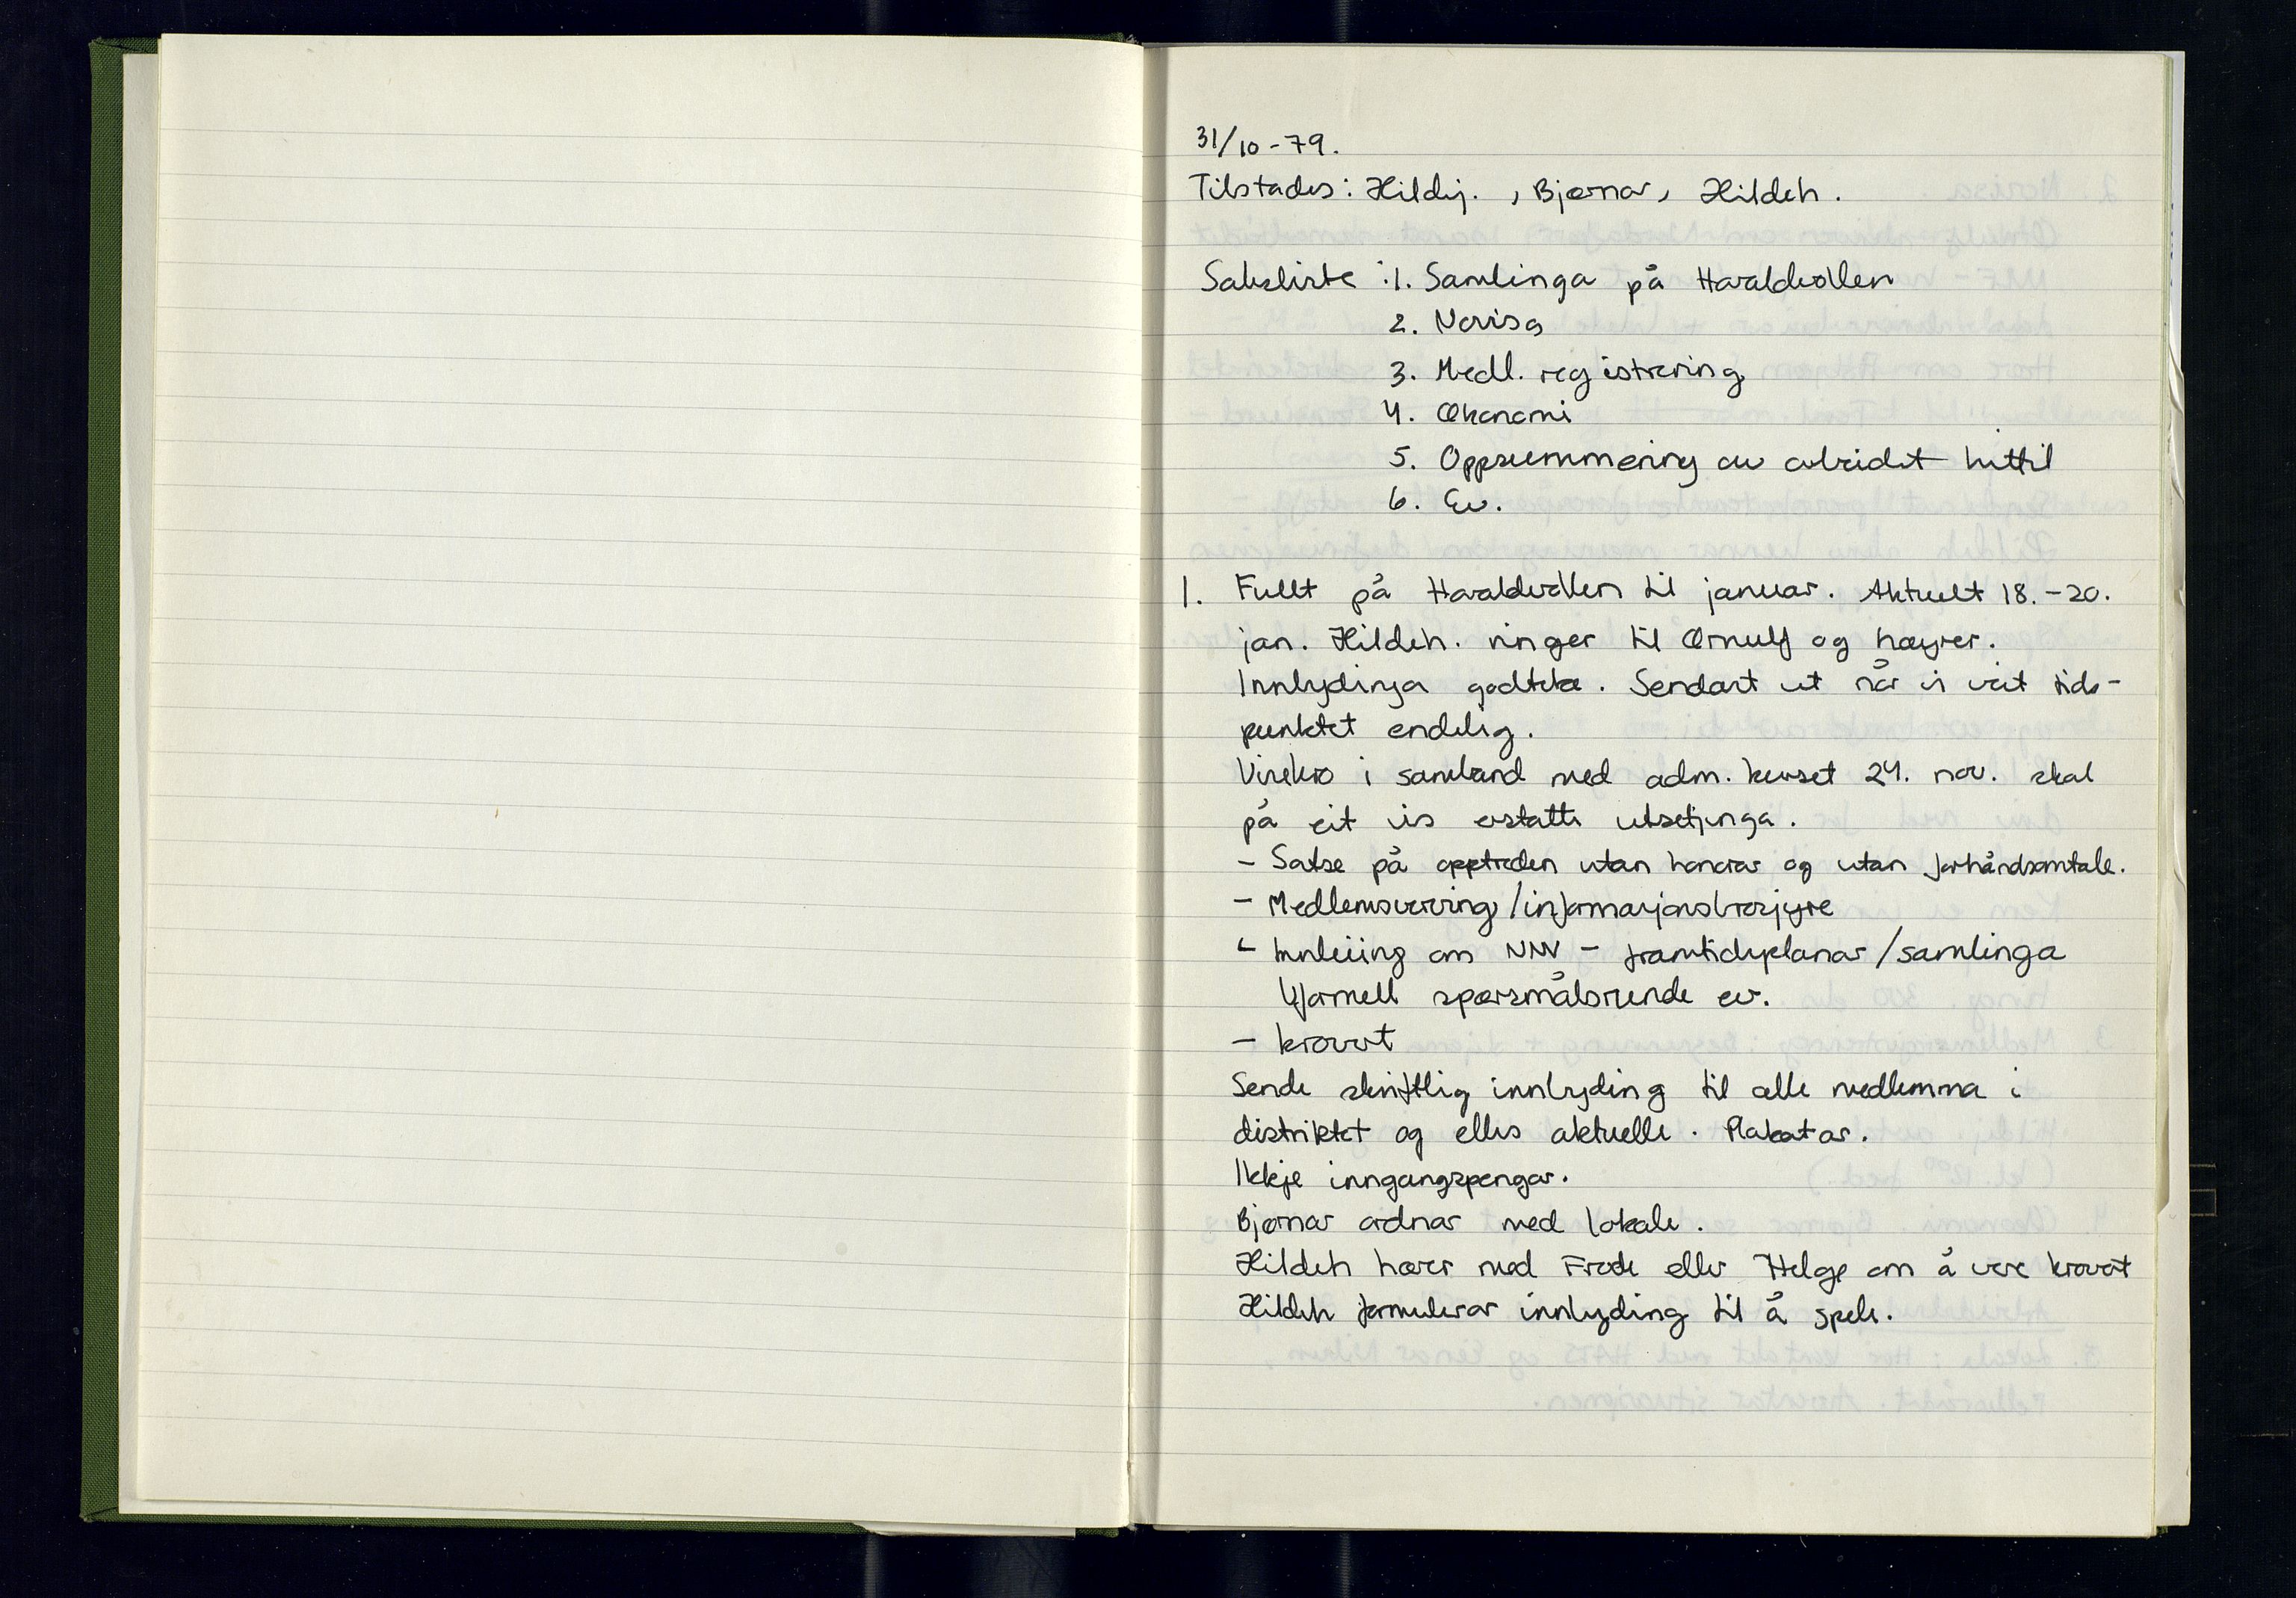 31/10-79.
Tilstades: Hildij. , Bjørnar, Hildeh.
Saksliste : 1. Samlinga på Haraldvollen
2. Novisa
3. Medl. registrering
4. Økonomi
5. Oppsummering av arbeidet hittil
6. Ev.
1. Fullt på Haraldvollen til januar. Aktuelt 18.-20.
jan. Hildeh. ringer til Ørnulf og høyrer.
Innbydinga godteke. Sendast ut når vi veit tids-
punktet endelig.
Visekro i samband med adm. kurset 24. nov. skal
på eit vis erstatte utsetjinga.
- Satse på opptreden utan honorar og utan forhåndsomtale.
- Medlemsverving/informasjonsbrosjyre
- Innleiing om NNV - framtidsplanar/samlinga
Uformell spørsmålsrunde ev.
- krovert
Sende skriftlig innbyding til alle medlemma i
distriktet og elles aktuelle. Plakatar.
Ikkje inngangspengar.
Bjørnar ordnar med lokale.
Hildeh hører med Frode eller Helge om å vere krovert
Hildeh formulerar innbyding til å spele.